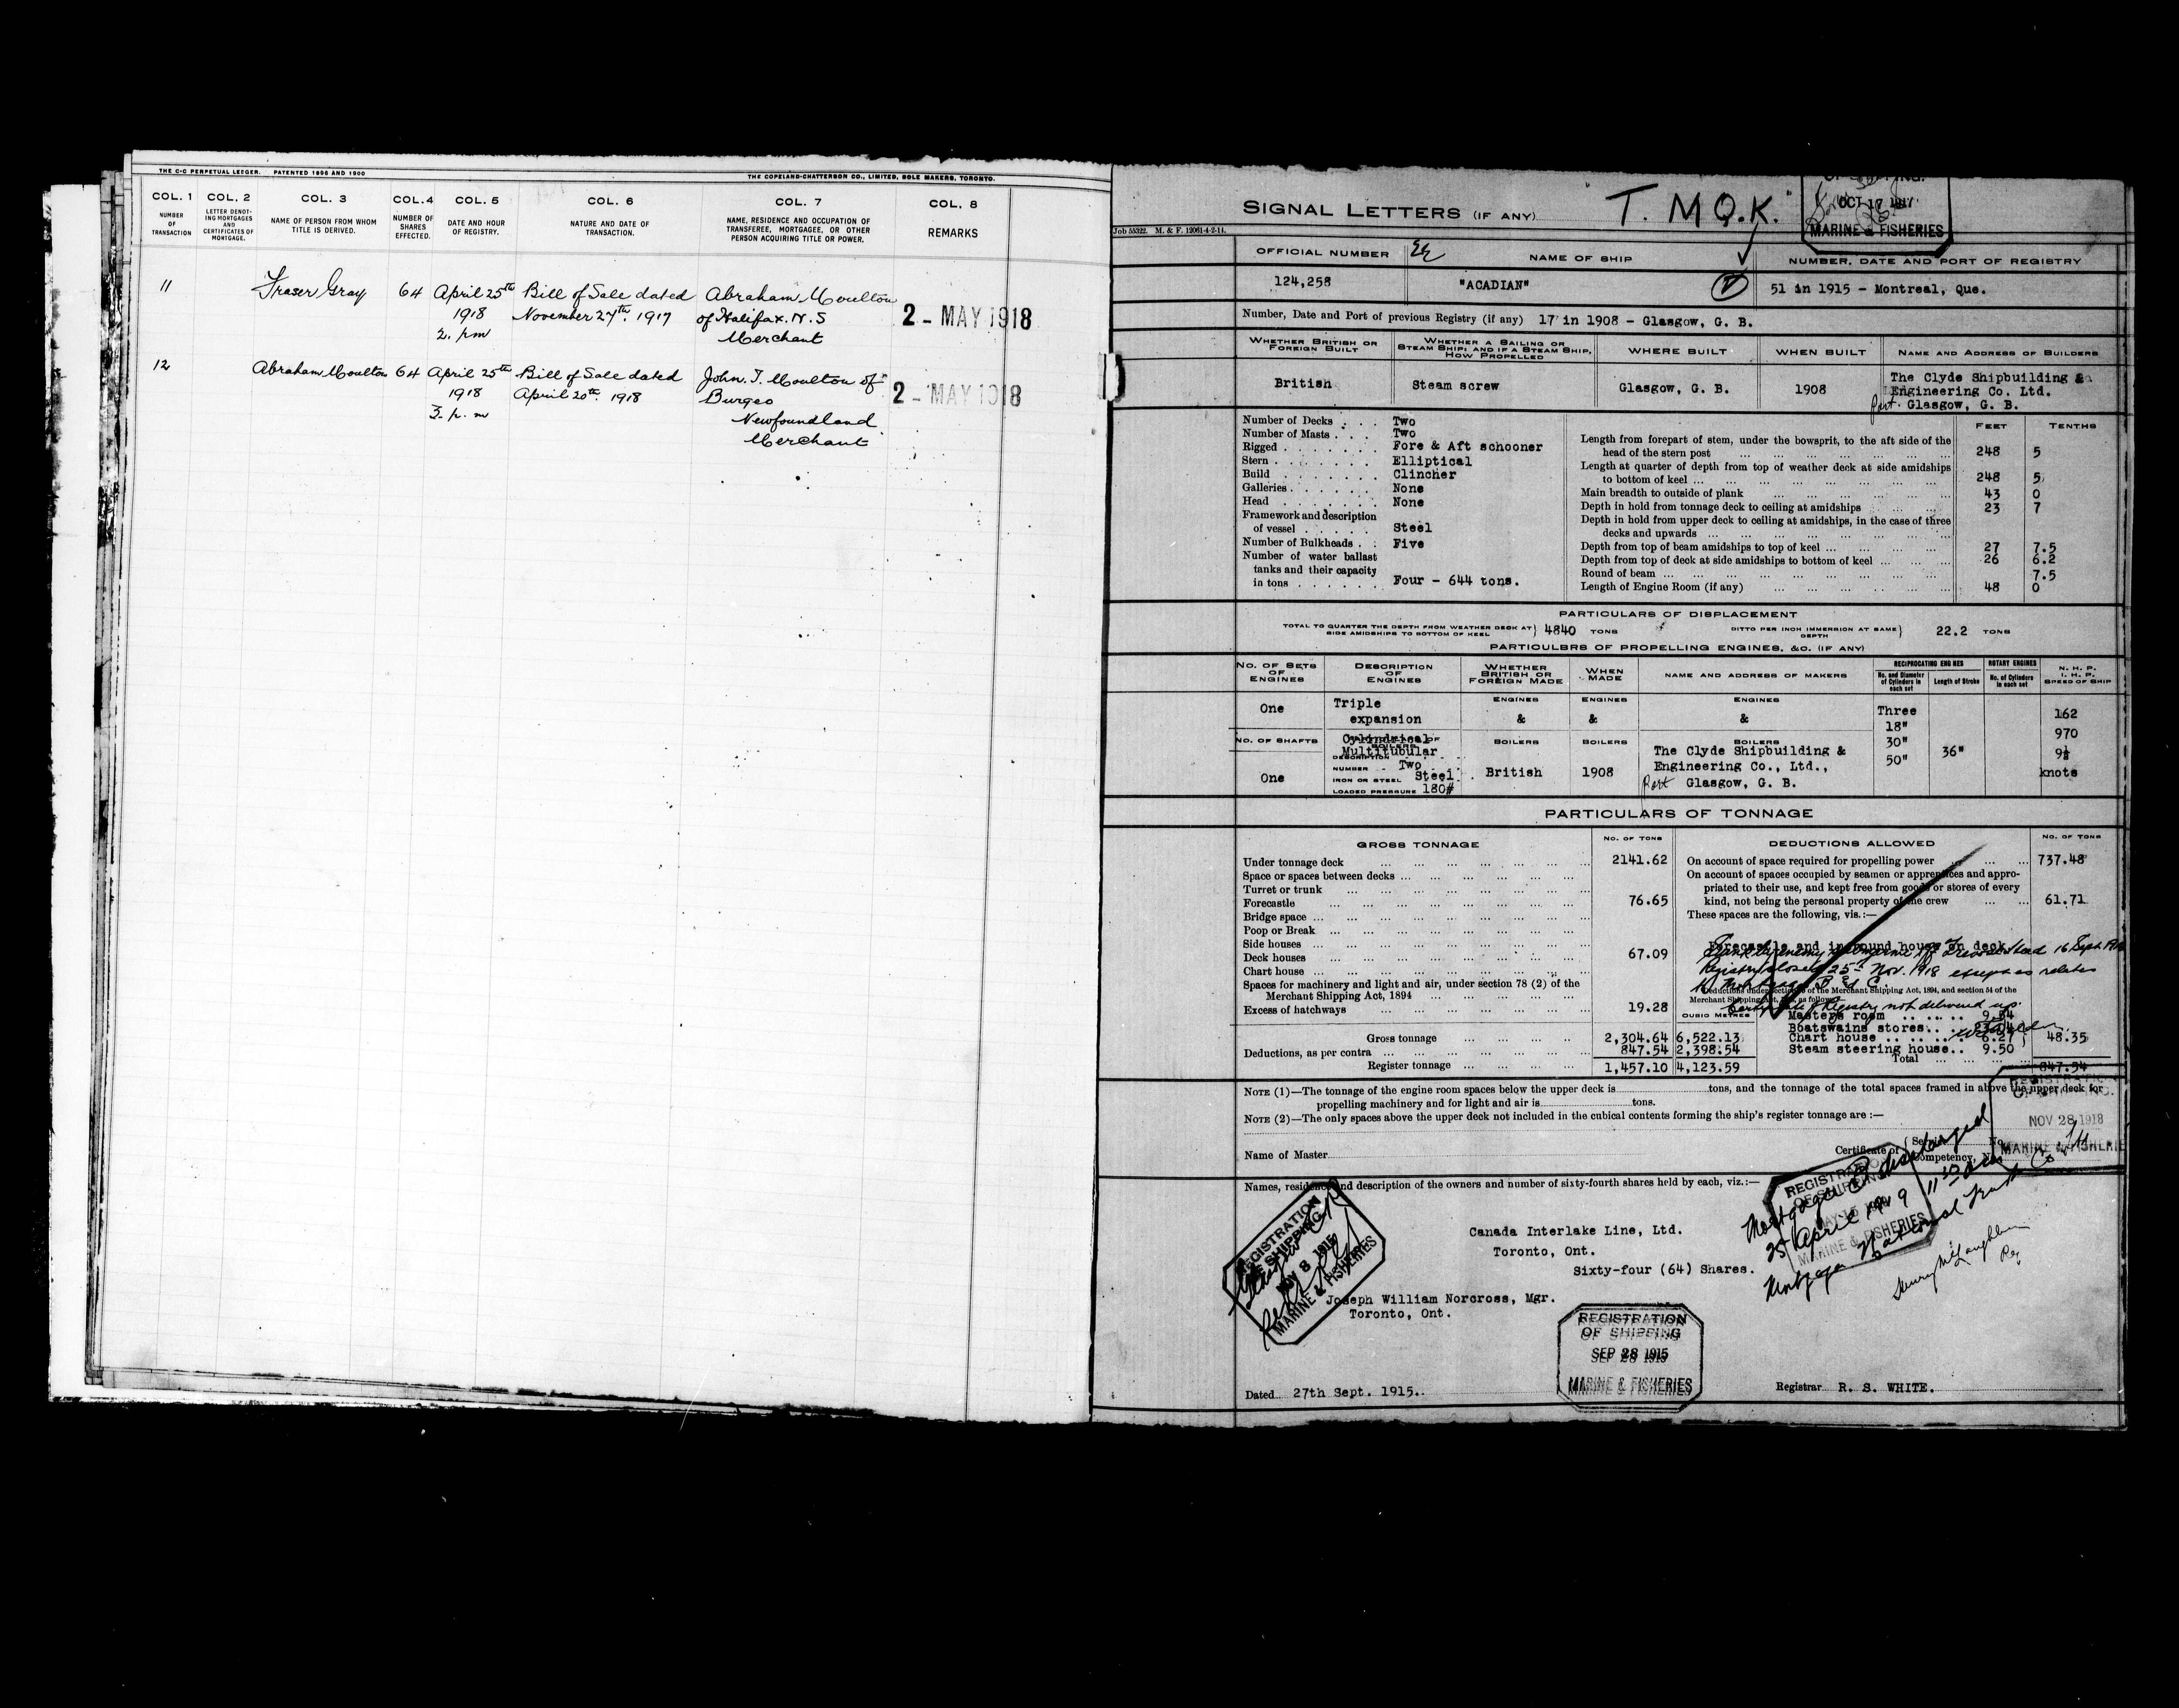 THE C-C PERPETUAL LEDGER. PATENTED 1896 AND 1900
THE COPELAND-CHATTERSON CO., LIMITED, SOLE MAKERS, TORONTO.
COL. 1 COL. 2 COL. 3 COL. 4 COL. 5 COL. 6 COL. 7 COL. 8
NUMBER OF TRANSACTION
LETTER DENOTING MORTGAGES AND CERTIFICATES OF MORTGAGE.
NAME OF PERSON FROM WHOM TITLE IS DERIVED.
NUMBER OF SHARES EFFECTED.
DATE AND HOUR OF REGISTRY.
NATURE AND DATE OF TRANSACTION.
NAME, RESIDENCE AND OCCUPATION OF TRANSFEREE, MORTGAGEE, OR OTHER PERSON ACQUIRING TITLE OR POWER.
REMARKS
11 Fraser Gray 64 April 25th Bill of Sale dated Abraham Moulton
1918 November 27th. 1917 of Halifax. N.S 2 - MAY 1918
2. pm Merchant
12 Abraham Moulton 64 April 25th Bill of Sale dated John. T. Moulton of
1918 April 20th. 1918 Burgeo 2 - MAY 1918
3. p. m Newfoundland
Merchant
SIGNAL LETTERS (IF ANY) "T. M Q. K."
OCT 17 1917
MARINE & FISHERIES
Job 55322. M. & F. 12061-4-2-14.
OFFICIAL NUMBER NAME OF SHIP NUMBER, DATE AND PORT OF REGISTRY
124,258 "ACADIAN" 51 in 1915 - Montreal, Que.
Number, Date and Port of previous Registry (if any) 17 in 1908 - Glasgow, G. B.
WHETHER BRITISH OR FOREIGN BUILT
WHETHER A SAILING OR STEAM SHIP; AND IF A STEAM SHIP, HOW PROPELLED
WHERE BUILT WHEN BUILT NAME AND ADDRESS OF BUILDERS
British Steam screw Glasgow, G. B. 1908 The Clyde Shipbuilding &
Engineering Co. Ltd.
Port Glasgow, G. B.
Number of Decks . . . Two
Number of Masts . . . Two
Rigged . . . Fore & Aft schooner
Stern . . . Elliptical
Build . . . Clincher
Galleries . . . None
Head . . . None
Framework and description
of vessel . . . Steel
Number of Bulkheads . . Five
Number of water ballast
tanks and their capacity
in tons . . . Four - 644 tons.
FEET TENTHS
Length from forepart of stem, under the bowsprit, to the aft side of the
head of the stern post 248 5
Length at quarter of depth from top of weather deck at side amidships
to bottom of keel 248 5
Main breadth to outside of plank 43 0
Depth in hold from tonnage deck to ceiling at amidships 23 7
Depth in hold from upper deck to ceiling at amidships, in the case of three
decks and upwards
Depth from top of beam amidships to top of keel 27 7.5
Depth from top of deck at side amidships to bottom of keel 26 6.2
Round of beam 7.5
Length of Engine Room (if any) 48 0
PARTICULARS OF DISPLACEMENT
TOTAL TO QUARTER THE DEPTH FROM WEATHER DECK AT SIDE AMIDSHIPS TO BOTTOM OF KEEL } 4840 TONS
DITTO PER INCH IMMERSION AT SAME DEPTH } 22.2 TONS
PARTICULBRS OF PROPELLING ENGINES, &C. (IF ANY)
NO. OF SETS OF ENGINES
DESCRIPTION OF ENGINES
WHETHER BRITISH OR FOREIGN MADE
WHEN MADE
NAME AND ADDRESS OF MAKERS
RECIPROCATING ENGINES
No. and Diameter of Cylinders in each set
Length of Stroke
ROTARY ENGINES
No. of Cylinders in each set
N. H. P.
I. H. P.
SPEED OF SHIP
ENGINES ENGINES ENGINES
One Triple Three
expansion & & & 18" 162
NO. OF SHAFTS Cylindrical BOILERS BOILERS BOILERS 30" 970
Multitubular The Clyde Shipbuilding & 50" 36" 9½
DESCRIPTION
NUMBER Two Engineering Co., Ltd., knots
One IRON OR STEEL Steel British 1908 Port Glasgow, G. B.
LOADED PRESSURE 180#
PARTICULARS OF TONNAGE
GROSS TONNAGE NO. OF TONS
Under tonnage deck 2141.62
Space or spaces between decks
Turret or trunk
Forecastle 76.65
Bridge space
Poop or Break
Side houses
Deck houses 67.09
Chart house
Spaces for machinery and light and air, under section 78 (2) of the
Merchant Shipping Act, 1894
Excess of hatchways 19.28
CUBIC METRES
Gross tonnage 2,304.64 6,522.13
Deductions, as per contra 847.54 2,398.54
Register tonnage 1,457.10 4,123.59
DEDUCTIONS ALLOWED NO. OF TONS
On account of space required for propelling power 737.48
On account of spaces occupied by seamen or apprentices and appro-
priated to their use, and kept free from goods or stores of every
kind, not being the personal property of the crew 61.71
These spaces are the following, vis.:—
Forecastle and in round house on deck
Sunk by enemy submarine off Trevose Head 16 Sept. 1918
Registry closed 25th Nov. 1918 except as relates
to Mortgages B & C.
Deductions under section 79 of the Merchant Shipping Act, 1894, and section 54 of the
Merchant Shipping Act, as follows
Certificate of Registry not delivered up.
Master's room 9.54
Boatswains stores
Chart house 6.27 48.35
Steam steering house.. 9.50
Total 847.54
NOTE (1)—The tonnage of the engine room spaces below the upper deck is tons, and the tonnage of the total spaces framed in above the upper deck for
propelling machinery and for light and air is tons.
NOTE (2)—The only spaces above the upper deck not included in the cubical contents forming the ship's register tonnage are :—
REGISTRATION
OF SHIPPING.
NOV 28 1918
MARINE & FISHERIES
Name of Master Certificate of { Service No.
Competency, No.
Names, residence and description of the owners and number of sixty-fourth shares held by each, viz.:—
REGISTRATION
OF SHIPPING
NOV 8 1915
MARINE & FISHERIES
Canada Interlake Line, Ltd.
Toronto, Ont.
Sixty-four (64) Shares.
Joseph William Norcross, Mgr.
Toronto, Ont.
Mortgage B discharged
25 April 1919 11 30 a.m.
Mortgagee National Trust Co. Ltd
Henry McLaughlin
Reg
REGISTRATION
OF SHIPPING
MARINE & FISHERIES
REGISTRATION
OF SHIPPING
SEP 28 1915
MARINE & FISHERIES
Dated 27th Sept. 1915. Registrar R. S. WHITE.